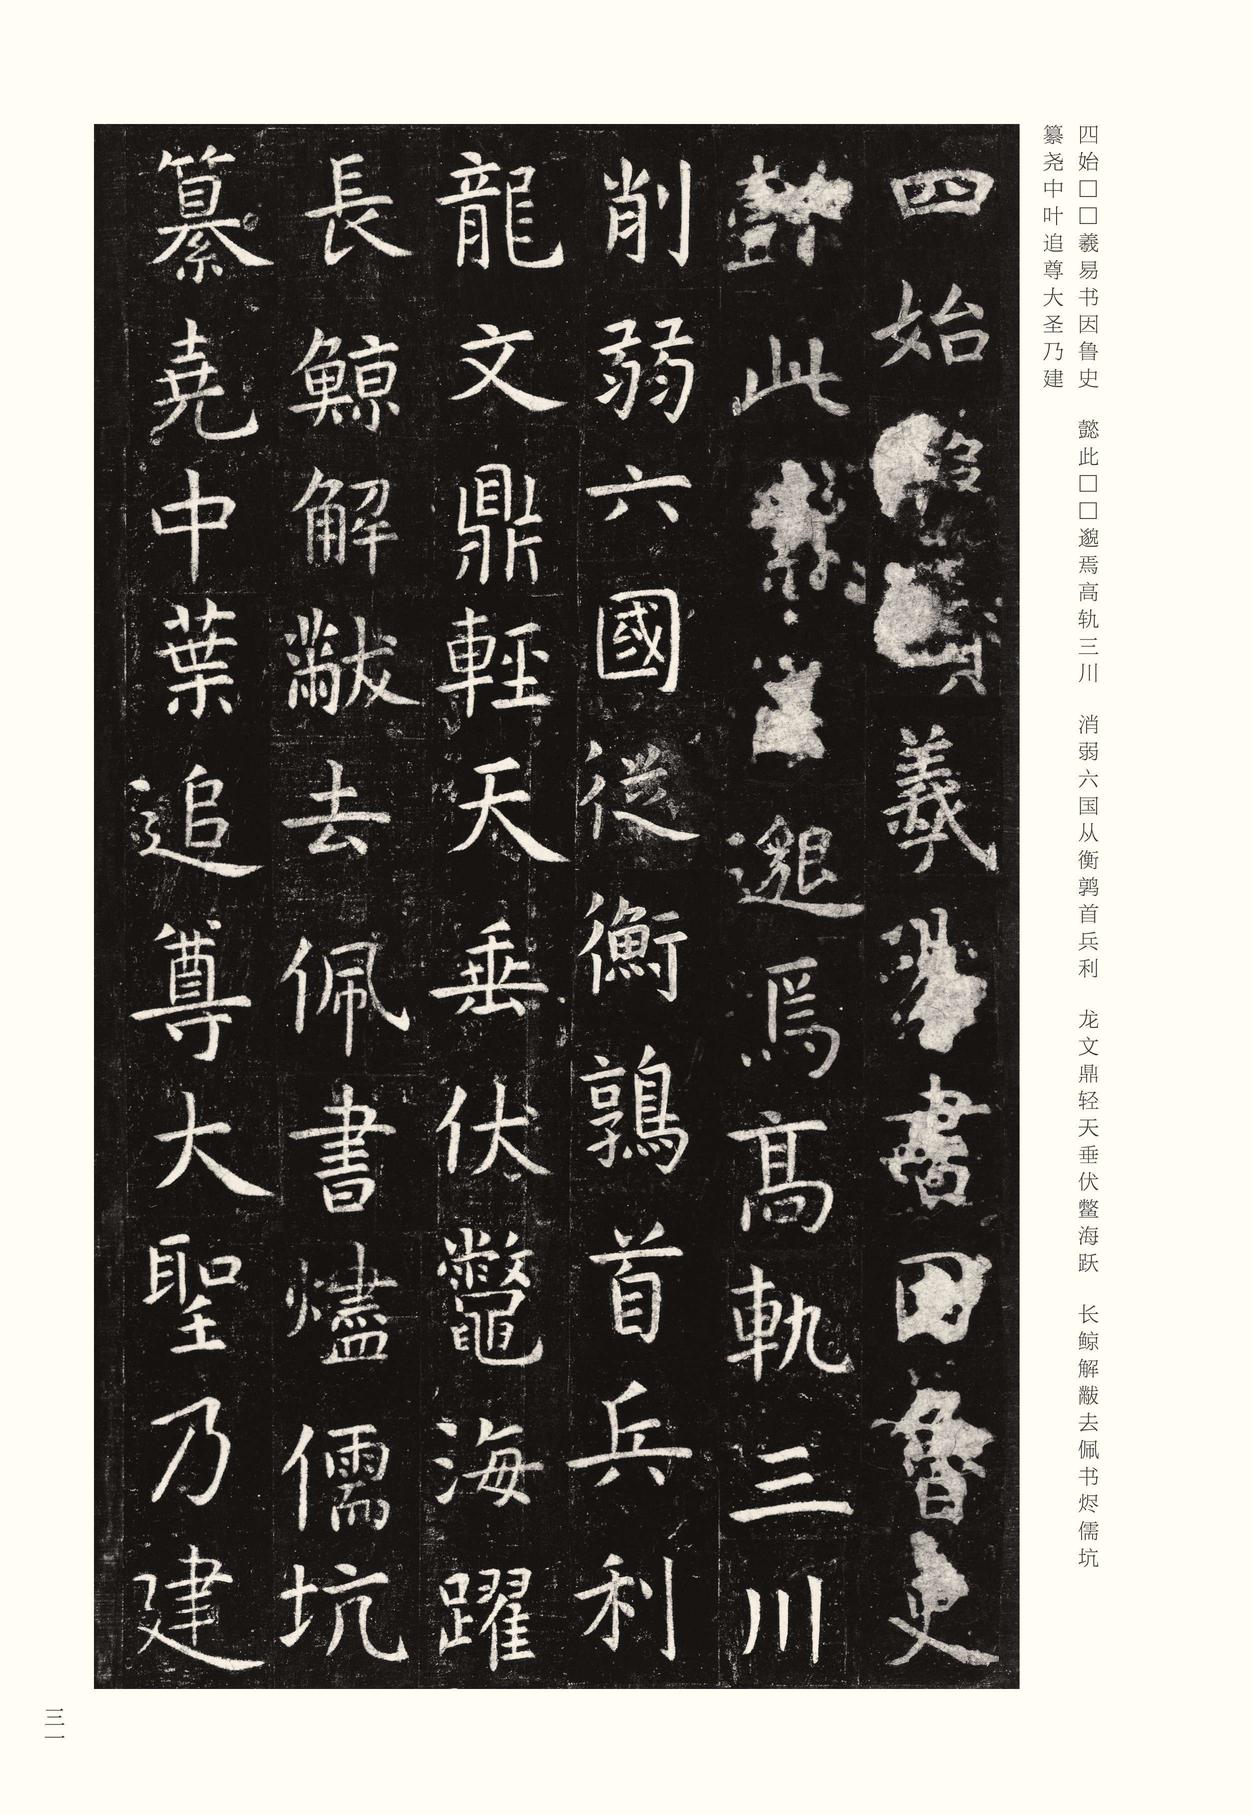 四始□□羲易书因鲁史　懿此□□邈焉高轨三川　消弱六国从衡鹑首兵利　龙文鼎轻天垂伏鳖海跃　长鲸解黻去佩书烬儒坑
纂尧中叶追尊大圣乃建
四始羲書因魯史
懿此邈焉高軌三川
削弱六國從衡鶉首兵利
龍文鼎輕天垂伏鼈海躍
長鯨解黻去佩書燼儒坑
纂堯中葉追尊大聖乃建
三一